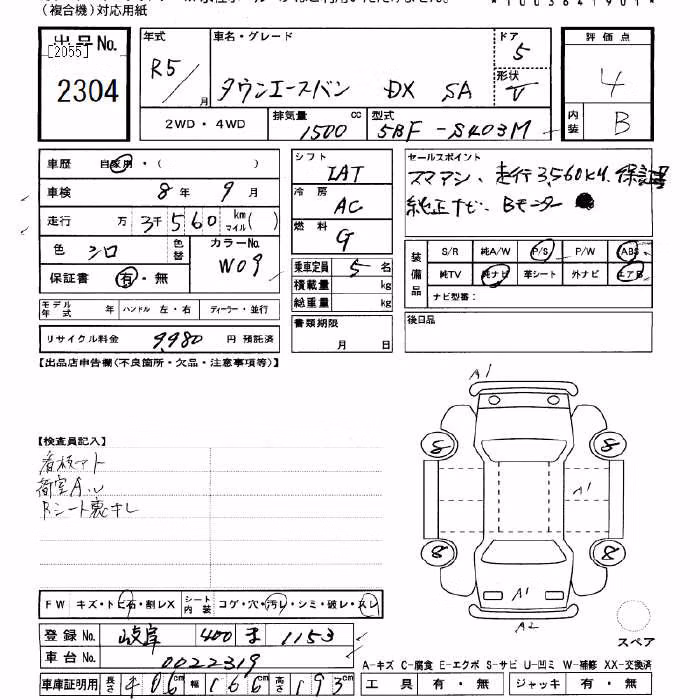 (複合機)対応用紙
*1003641901*
出品No.
[2055]
2304
年式 R5/ 月
車名・グレード タウンエースバン DX SA
ドア 5
形状 V
2WD・4WD
排気量 1500 cc
型式 5BF-S403M
評価点 4
内装 B
車歴 自家用・( )
車検 8年 9月
走行 万 3千560 km マイル( )
色 シロ
色替
カラーNo. W09
保証書 有・無
モデル年式 年 ハンドル 左・右 ディーラー・並行
リサイクル料金 9,980 円 預託済
シフト IAT
冷房 AC
燃料 G
乗車定員 5名
積載量 kg
総重量 kg
書類期限 月 日
セールスポイント
スマアシ、走行3,560kM、保証書
純正ナビ、Bモニター
装備品
S/R 純A/W P/S P/W ABS
純TV 純ナビ 革シート 外ナビ エアB
ナビ型番:
後日品
【出品店申告欄(不良箇所・欠品・注意事項等)】
【検査員記入】
看板アト
荷室A.U
Rシート裏キレ
A1
8 8
A1
8 8
A1
A2
スペア
FW キズ・トビ石・割レX
シート内装 コゲ・穴・汚レ・シミ・破レ・スレ
登録No. 岐阜 400 1153
車台No. 0022319
車庫証明用 長さ 406cm 幅 166cm 高さ 193cm
A-キズ C-腐食 E-エクボ S-サビ U-凹ミ W-補修 XX-交換済
工具 有・無 ジャッキ 有・無